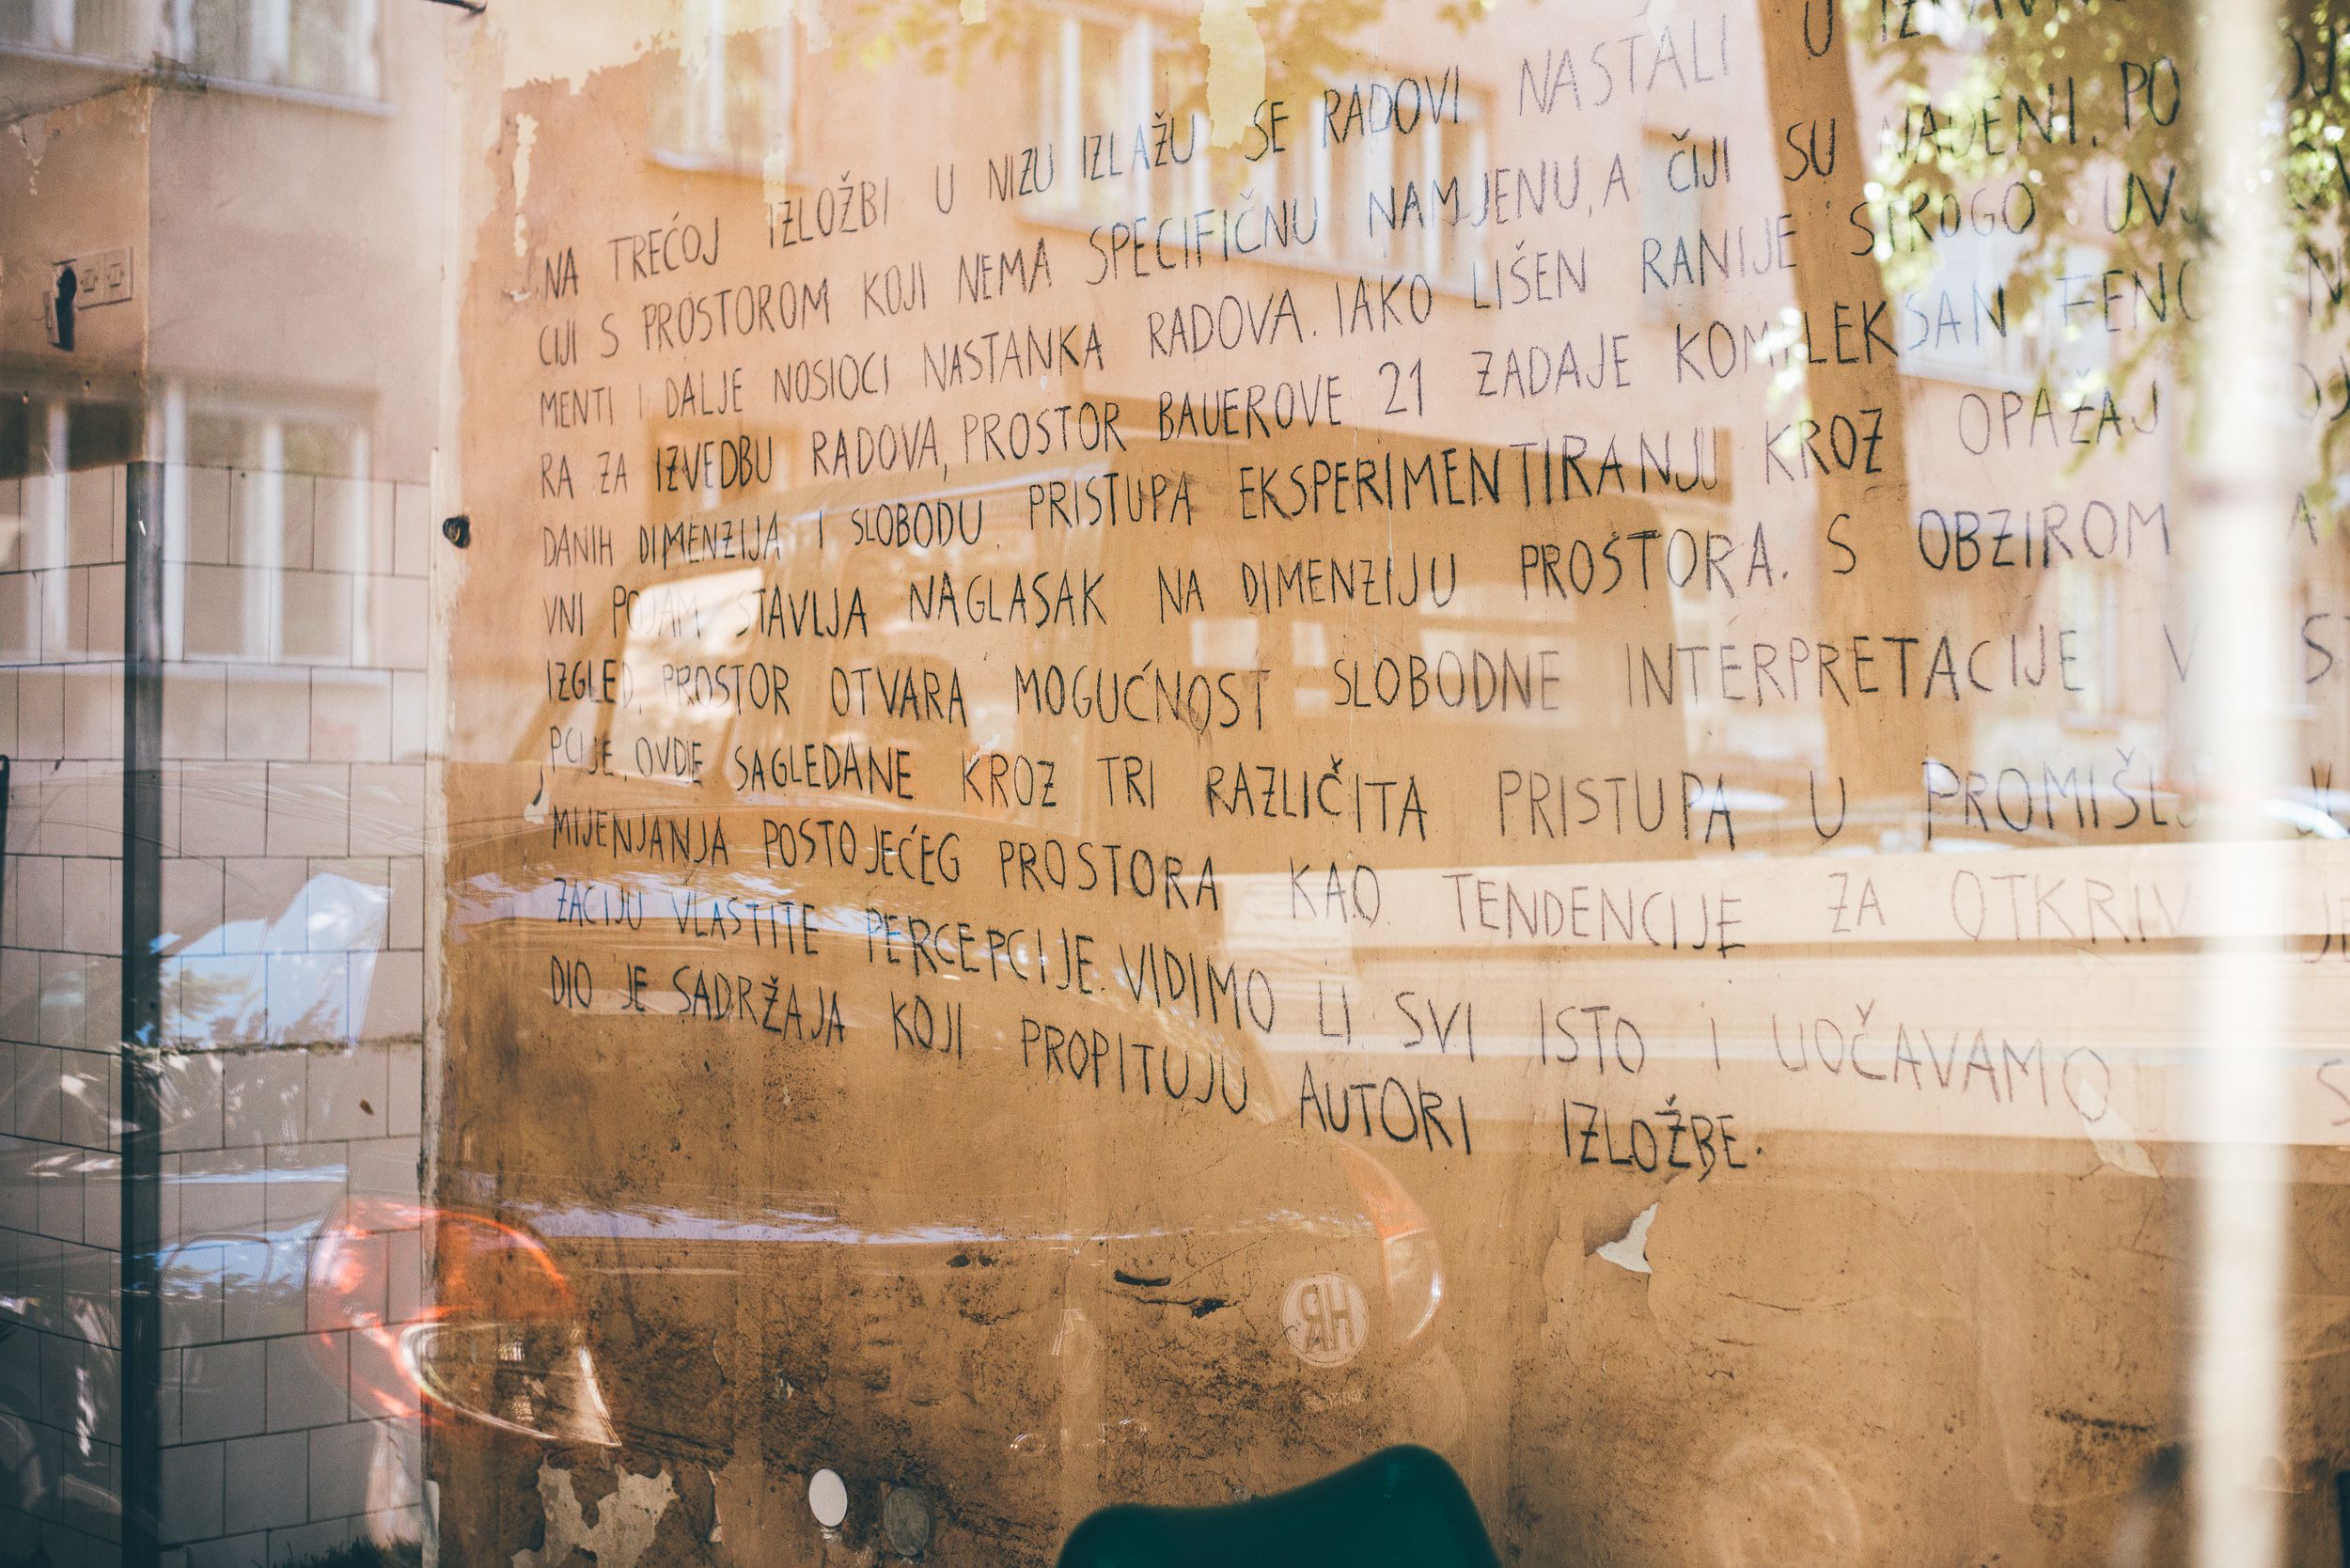 NA TREĆOJ IZLOŽBI U NIZU IZLAŽU SE RADOVI NASTALI U
CIJI S PROSTOROM KOJI NEMA SPECIFIČNU NAMJENU, A ČIJI SU NAĐENI. PO
MENTI I DALJE NOSIOCI NASTANKA RADOVA. IAKO LIŠEN RANIJE STROGO
RA ZA IZVEDBU RADOVA, PROSTOR BAUEROVE 21 ZADAJE KOMPLEKSAN
DANIH DIMENZIJA I SLOBODU PRISTUPA EKSPERIMENTIRANJU KROZ OPAŽAJ
VNI POJAM STAVLJA NAGLASAK NA DIMENZIJU PROSTORA. S OBZIROM
IZGLED, PROSTOR OTVARA MOGUĆNOST SLOBODNE INTERPRETACIJE
PCIJE, OVDJE SAGLEDANE KROZ TRI RAZLIČITA PRISTUPA U
MIJENJANJA POSTOJEĆEG PROSTORA KAO TENDENCIJE ZA
ZACIJU VLASTITE PERCEPCIJE. VIDIMO LI SVI ISTO I UOČAVAMO
DIO JE SADRŽAJA KOJI PROPITUJU AUTORI IZLOŽBE.